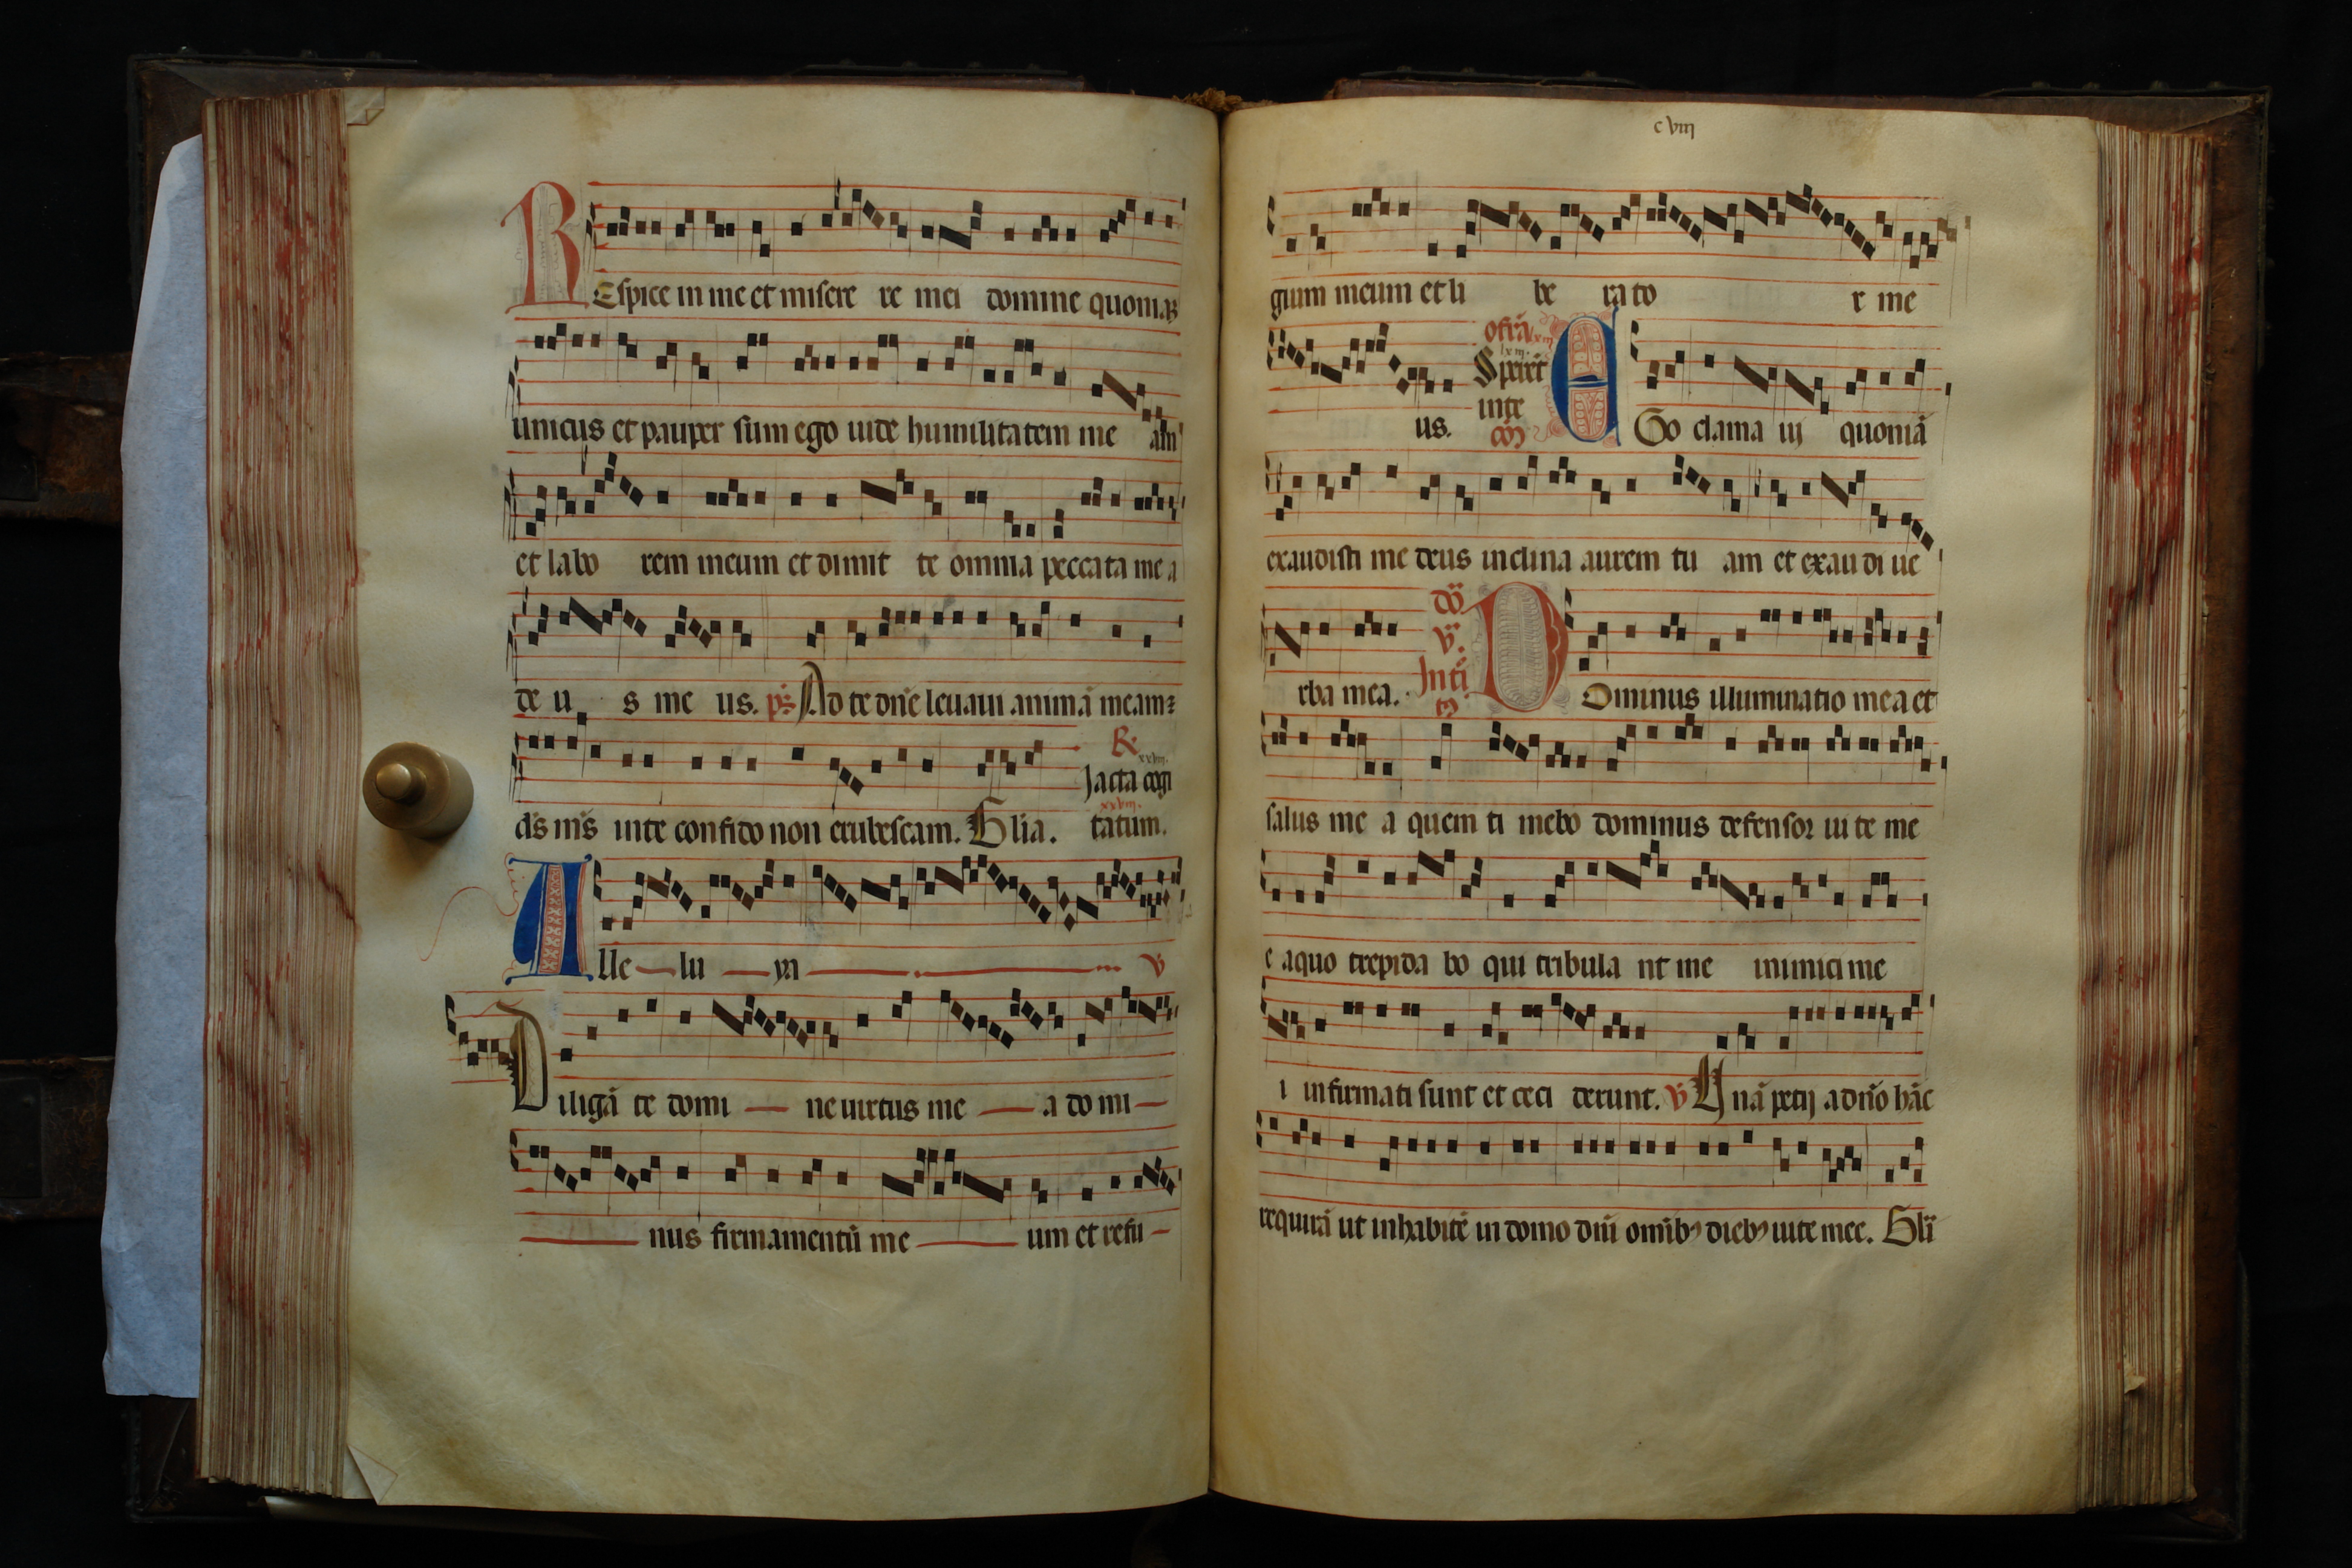 REspice in me et misere re mei domine quoniaꝫ
unicus et pauper sum ego uide humilitatem me am
et labo rem meum et dimit te omnia peccata me a
de u s me us. ps. Ad te dn̄e leuaui animā meam
R.
xxviij.
Jacta cogi
xxviij.
tatum.
ds̄ ms̄ inte confido non erubescam. Glia.
Alle lu ya V
Diligā te domi ne uirtus me a do mi
nus firmamentū me um et refu
cviij
gium meum et li be ra to r me
us.
ofr̄a
lxiij.
Sperēt
inte
cō
EGo clama ui quoniā
exaudisti me deus inclina aurem tu am et exau di ue
rba mea.
dō
V.
Intī
DOminus illuminatio mea et
salus me a quem ti mebo dominus defensor ui te me
e aquo trepida bo qui tribula nt me inimici me
i infirmati sunt et ceci derunt. V Unā petij adn̄o hāc
requirā ut inhabitē in domo dn̄i omib; dieb; uite mee. Glī